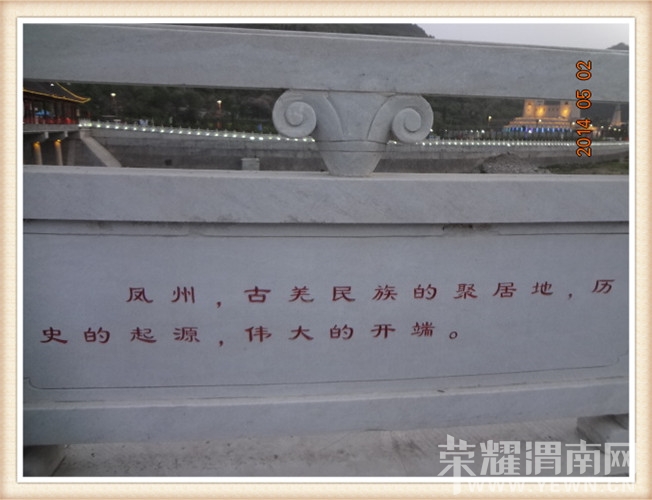 2014 05 02
凤州，古羌民族的聚居地，历
史的起源，伟大的开端。
荣耀渭南网
WWW.YEWN.CN